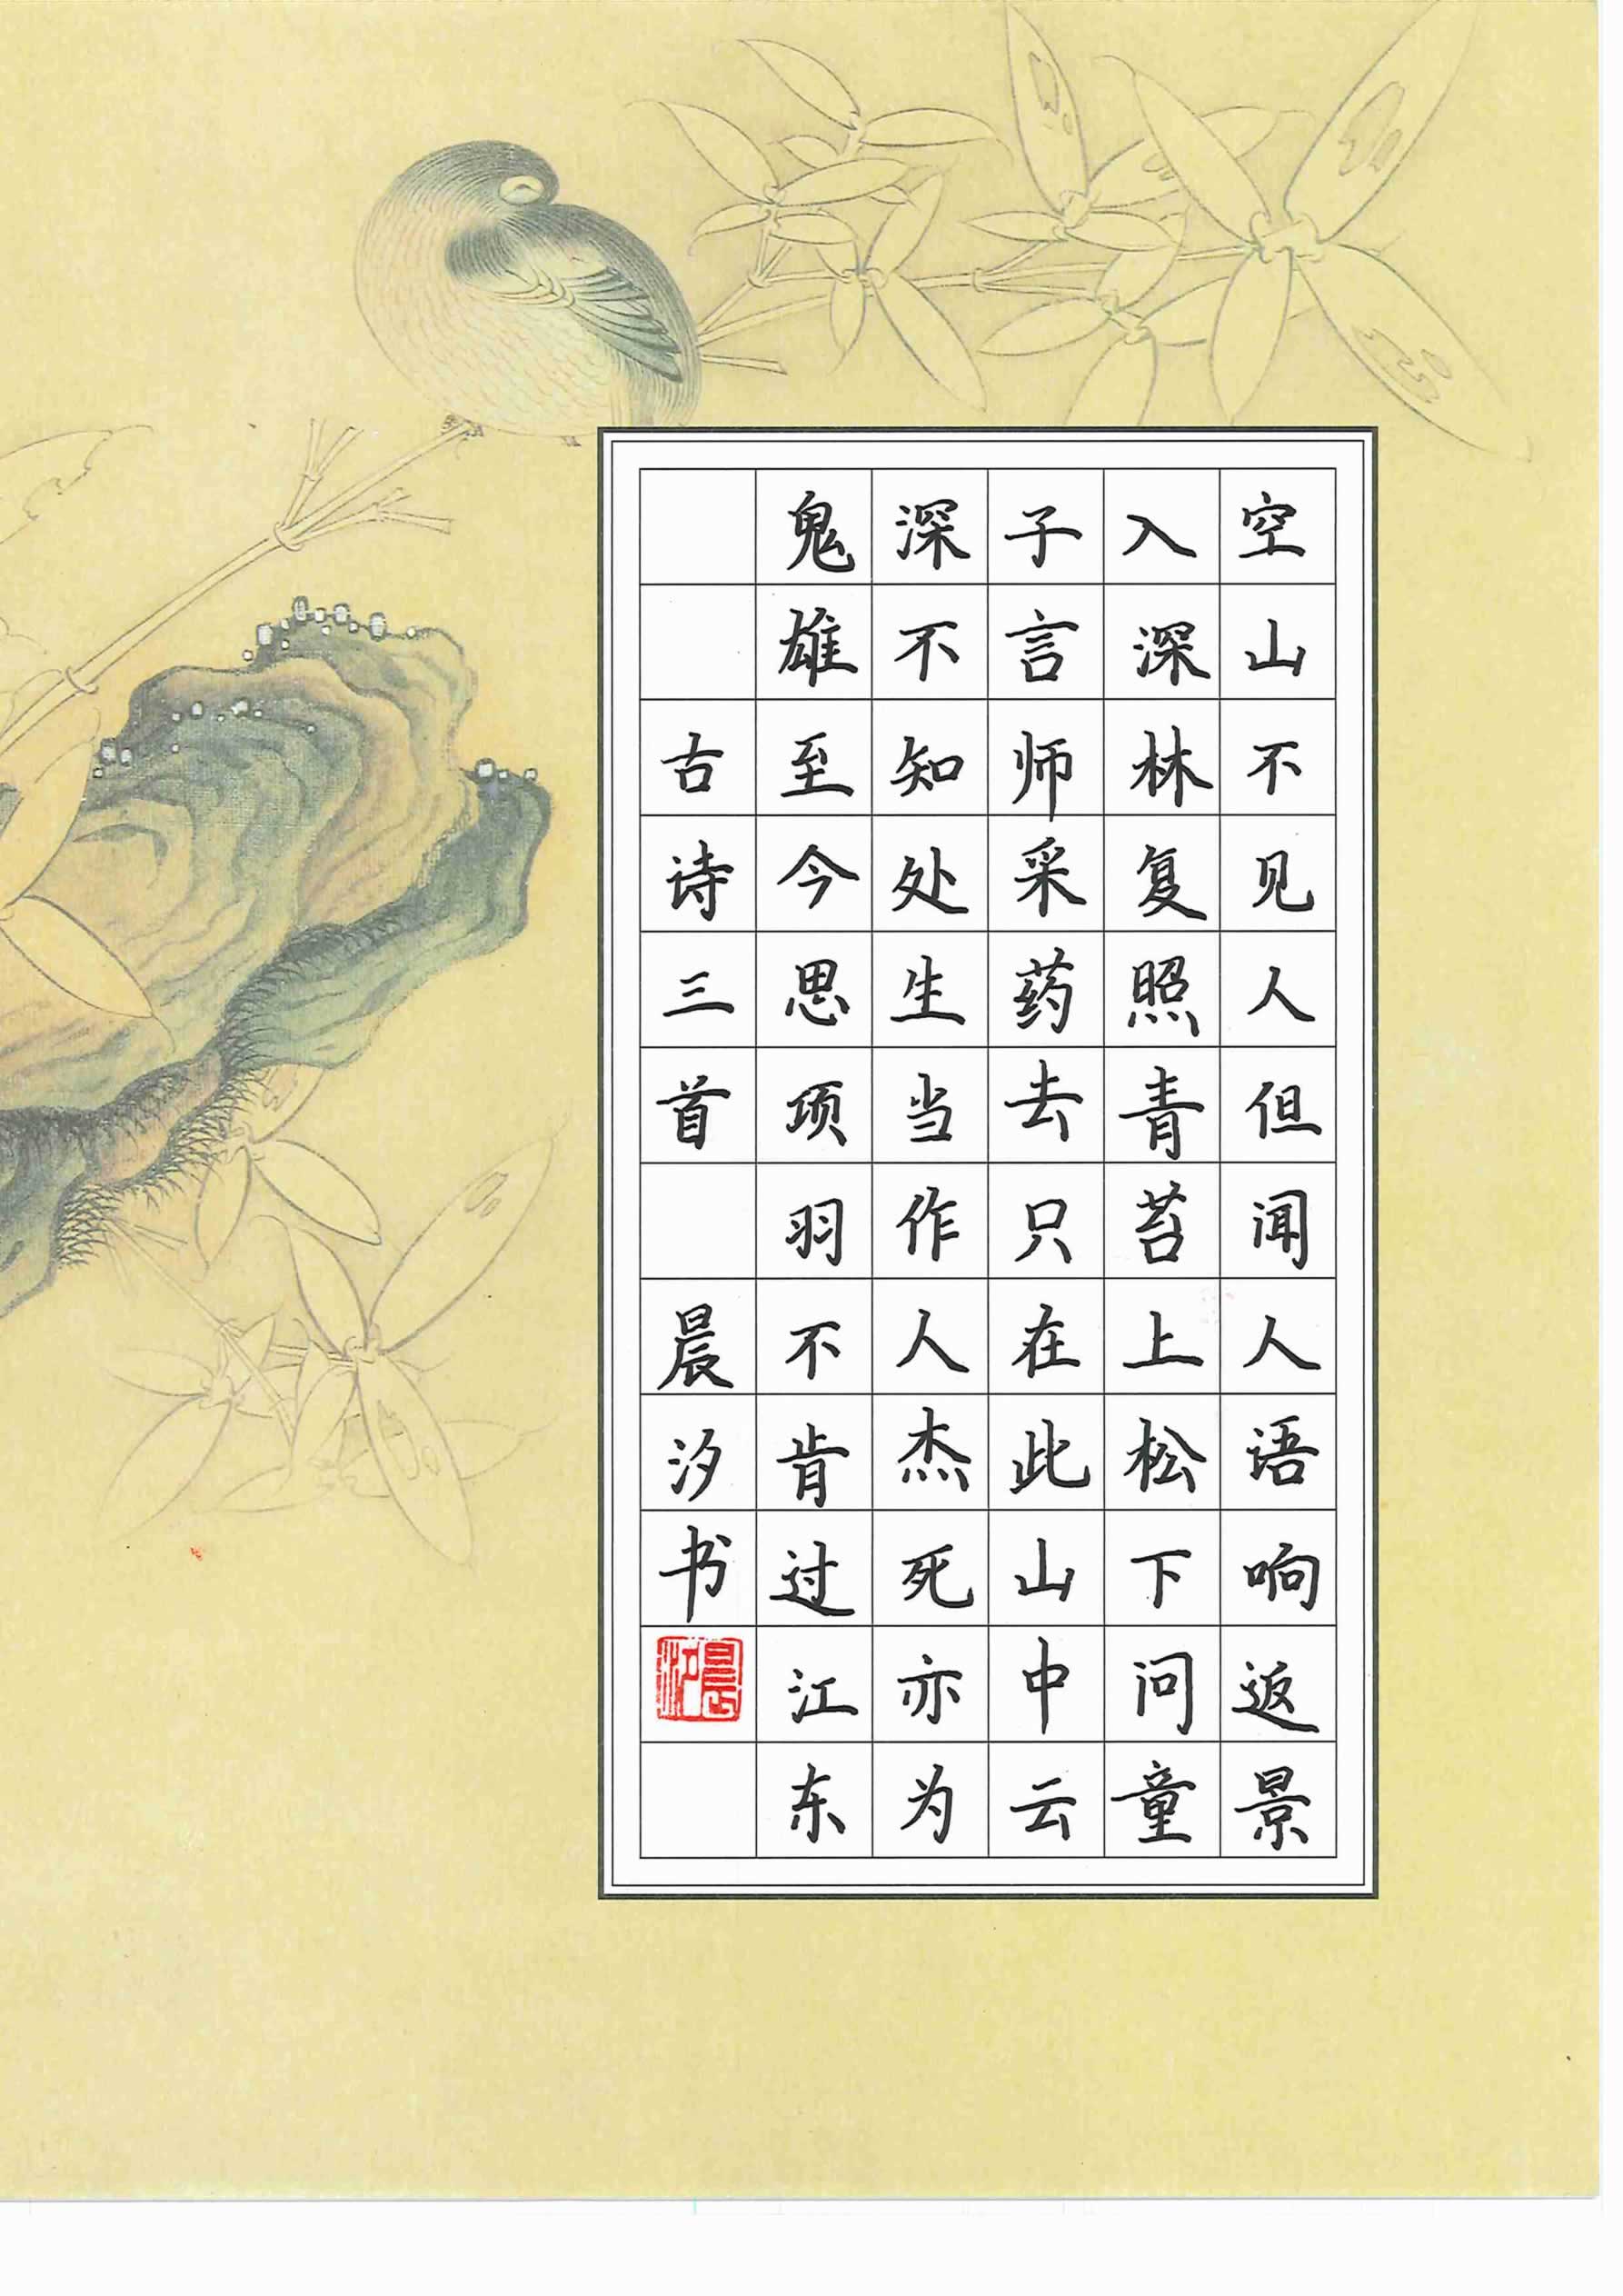 空山不见人但闻人语响返景
入深林复照青苔上松下问童
子言师采药去只在此山中云
深不知处生当作人杰死亦为
鬼雄至今思项羽不肯过江东
古诗三首 晨汐书
晨汐